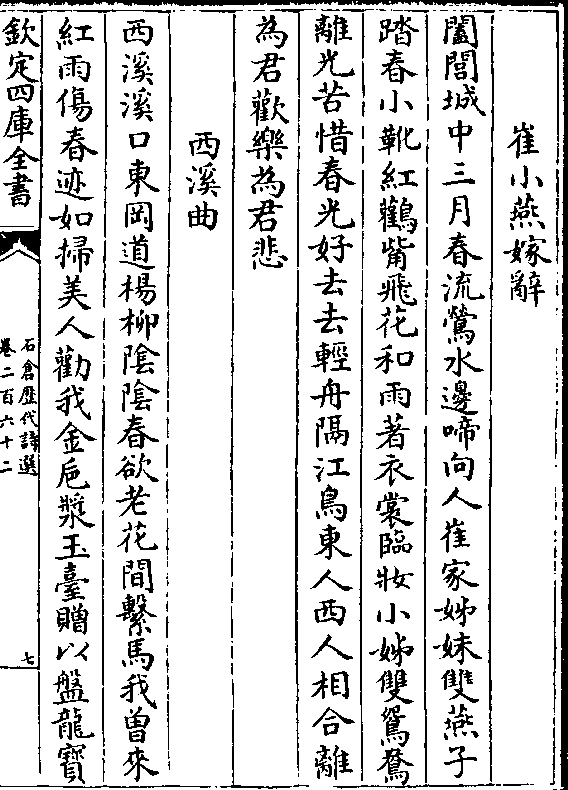 崔小燕嫁辭
闔閭城中三月春流鶯水邊啼向人崔家姊妹雙燕子
踏春小靴紅鸛觜飛花和雨著衣裳臨妝小姊雙鴛鴦
離光苦惜春光好去去輕舟隔江鳥東人西人相合離
為君歡樂為君悲
西溪曲
西溪溪口東岡道楊柳陰陰春欲老花間繫馬我曽來
紅雨傷春迹如掃美人勸我金巵漿玉臺贈以盤龍寳
欽定四庫全書
石倉歷代詩選
卷二百六十二
七